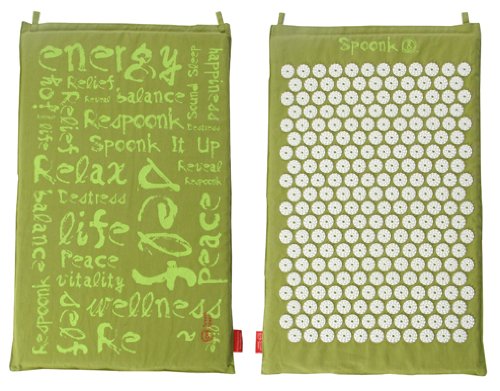 energy
happiness
Sound Sleep
Relief
Reveal
balance
life
Relief
Respoonk
Destress
Spoonk It Up
Relax
Reveal
Respoonk
Destress
self
balance
life
Peace
Peace
vitality
Respoonk
wellness
self
Re
life
Spoonk